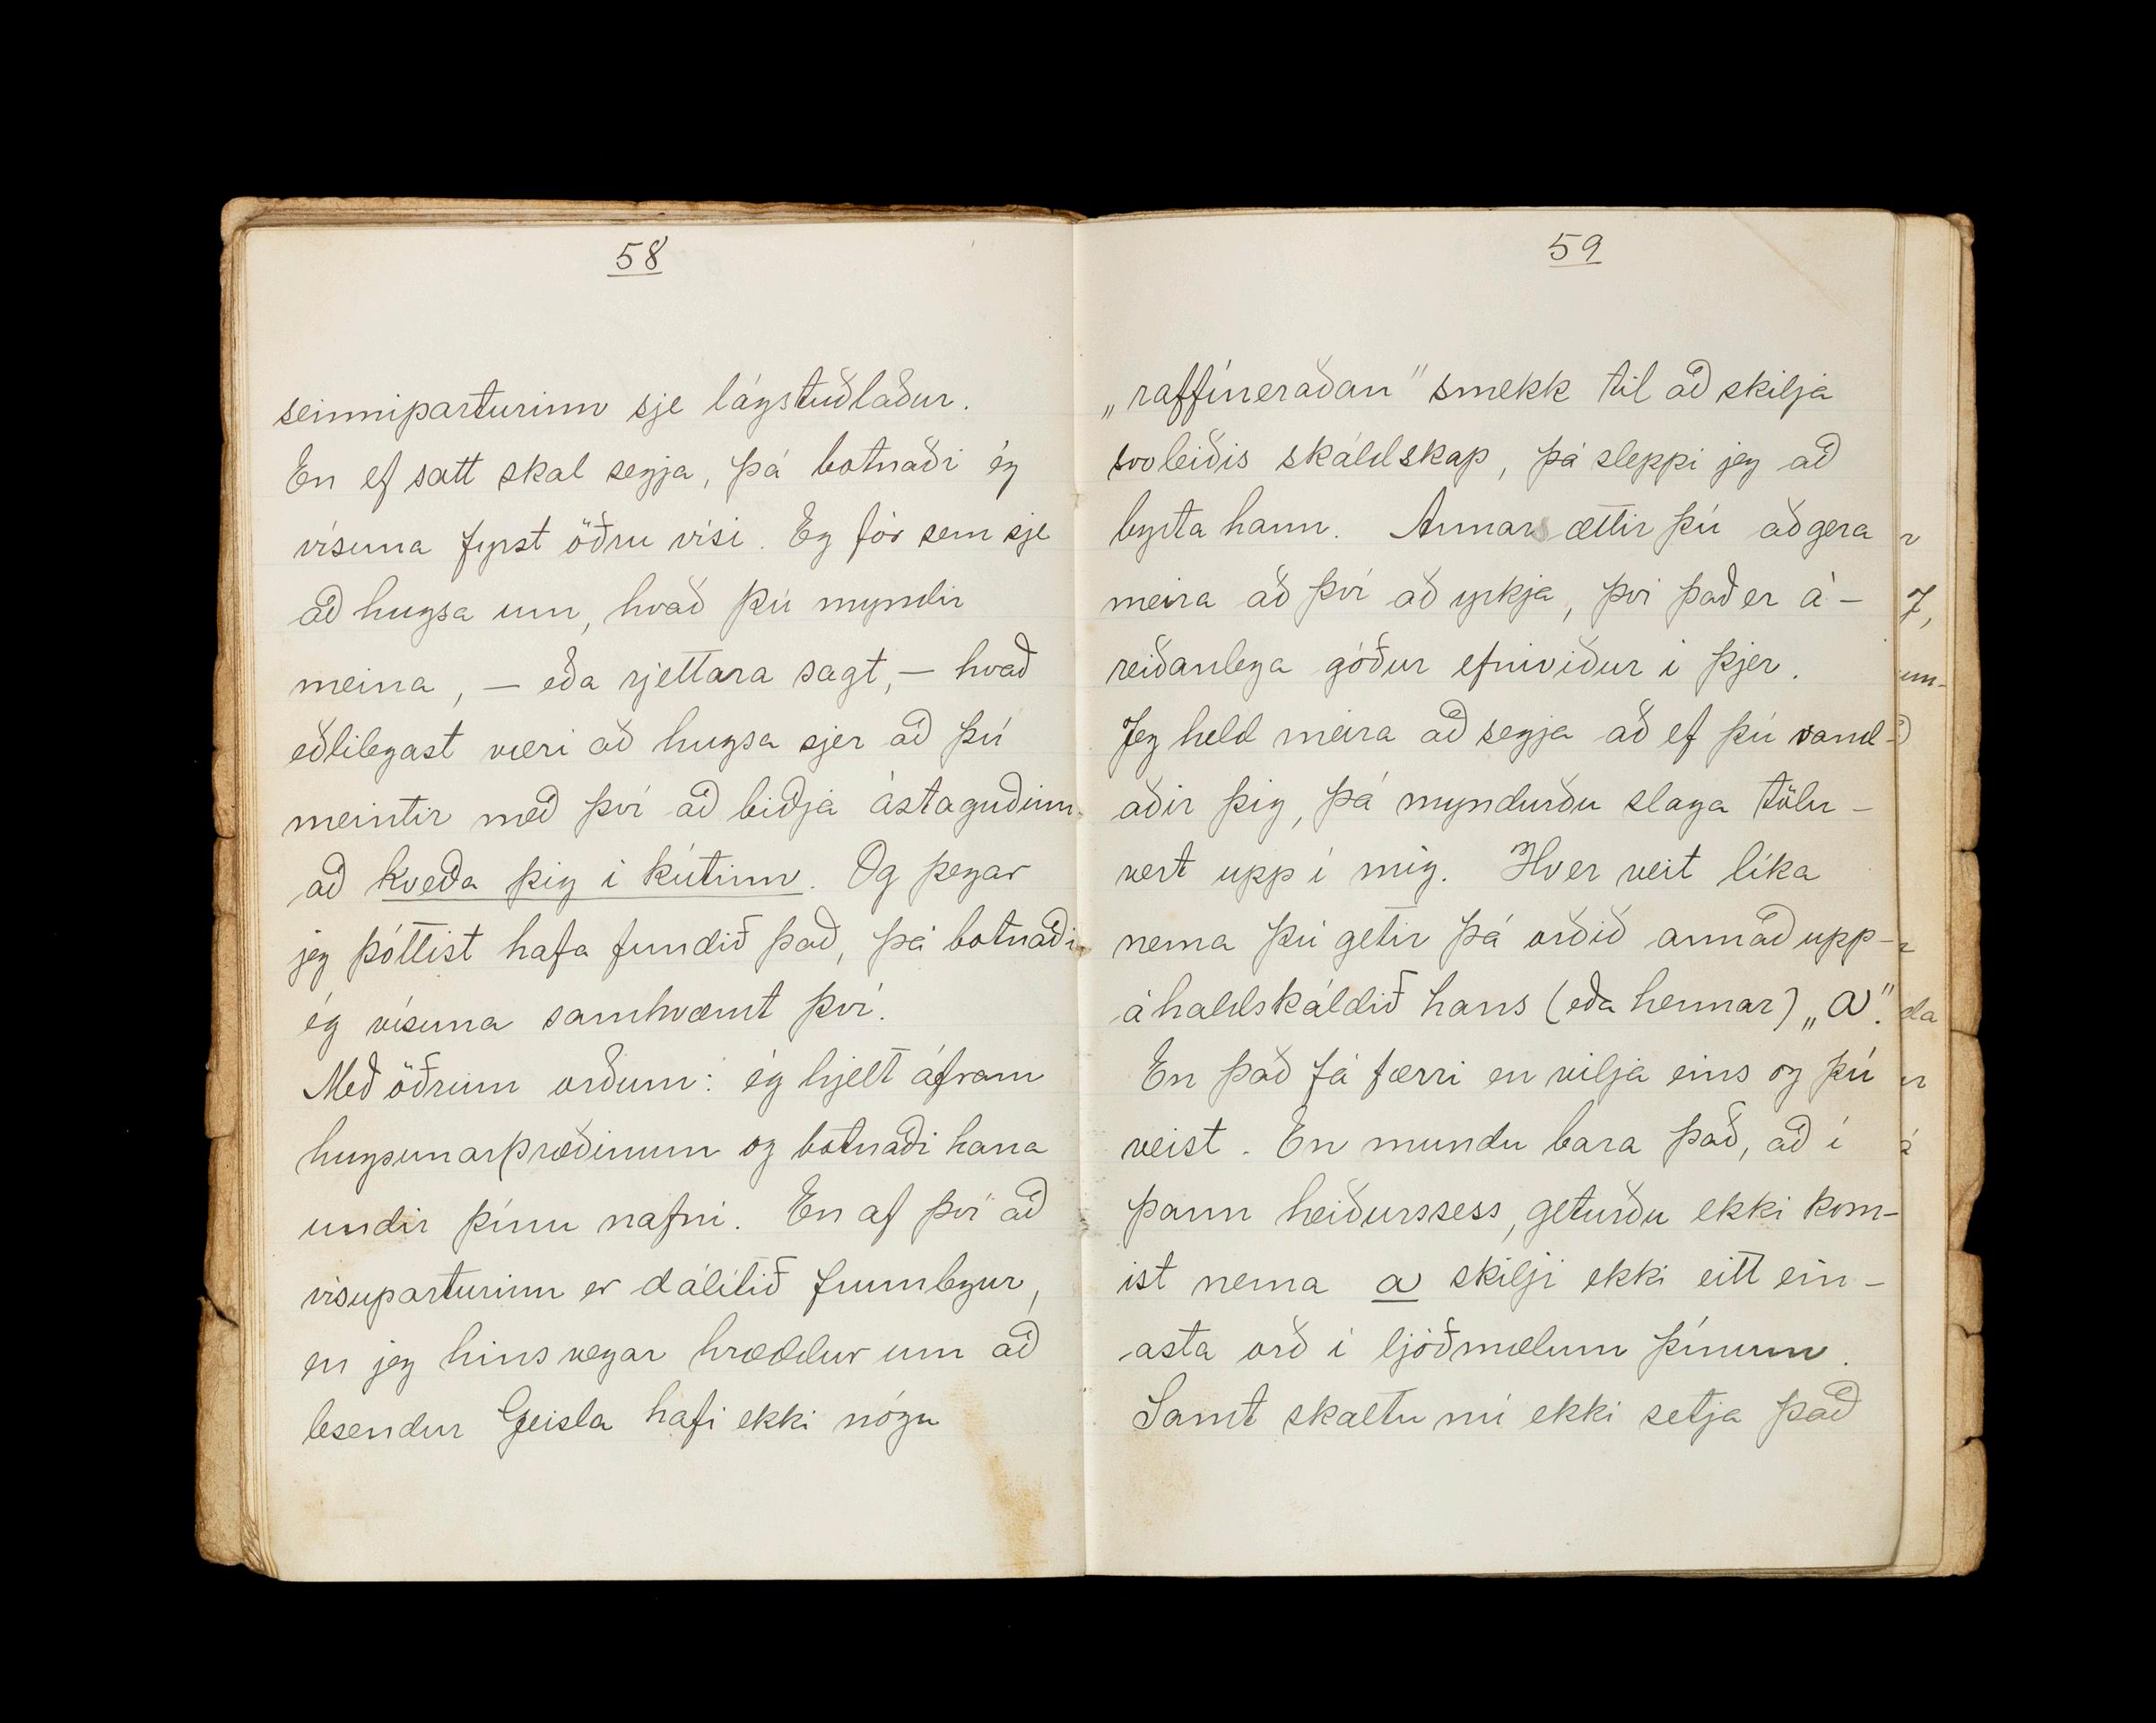 58
seinniparturinn sje lágstuðlaður.
En ef satt skal segja, þá botnaði ég
vísuna fyrst öðru vísi. Eg fór sem sje
að hugsa um, hvað þú myndir
meina, – eða rjettara sagt, – hvað
eðlilegast væri að hugsa sjer að þú
meintir með því að biðja ástaguðinn
að kveða þig í kútinn. Og þegar
jeg þóttist hafa fundið það, þá botnaði
ég vísuna samkvæmt því.
Með öðrum orðum: ég hjelt áfram
hugsunarþræðinum og botnaði hana
undir þínu nafni. En af því að
vísuparturinn er dálítið frumlegur,
en jeg hins vegar hræddur um að
lesendur Geisla hafi ekki nógu
59
„raffíneraðan" smekk til að skilja
svoleiðis skáldskap, þá sleppi jeg að
byrta hann. Annars ættir þú að gera
meira að því að yrkja, því það er á-
reiðanlega góður efniviður í þjer.
Jeg held meira að segja að ef þú vand-
aðir þig, þá myndurðu slaga tölu-
vert upp í mig. Hver veit líka
nema þú getir þá orðið annað upp-
áhaldskáldið hans (eða hennar) „a".
En það fá færri en vilja eins og þú
veist. En mundu bara það, að í
þann heiðurssess, geturðu ekki kom-
ist nema a skilji ekki eitt ein-
asta orð í ljóðmælum þínum.
Samt skaltu nú ekki setja það